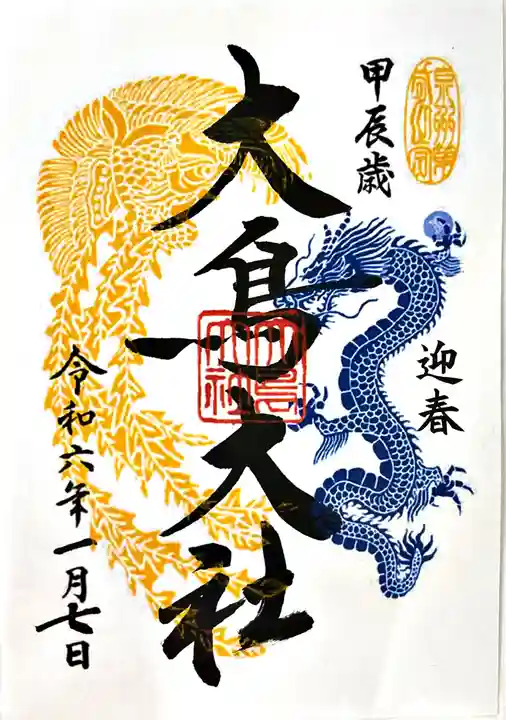 甲辰歳
迎春
大鳥大社
大鳥大社
令和六年一月七日